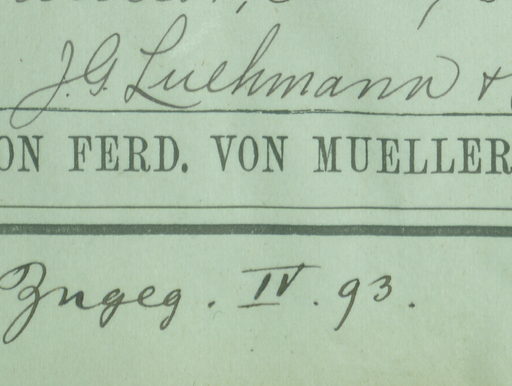 J.G. Luehmann &
ON FERD. VON MUELLER
Zugeg. IV. 93.